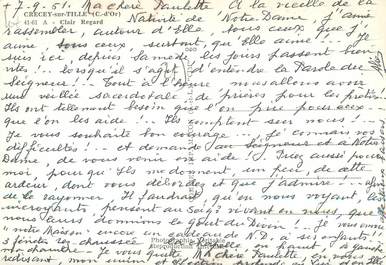 + 7.9.51. Ma chère Paulette A la veille de la
CRECEY-sur-TILLE (C.-d'Or)
4141 A - Clair Regard
Nativité de Notre-Dame j'aime
rassembler, autour d'Elle tous ceux que j'
aime tous ceux, surtout, qu'Elle aime! Je
suis ici, depuis Samedi, les jours passent bien
vite!... lorsqu'il s'agit d'entendre la Parole du
Seigneur! Tout à l'heure nous allons avoir
une veillée sacerdotale de prières pour les prêtres
Ils ont tellement besoin que l'on prie pour eux
que l'on les aide!! Ils comptent sur nous!
Je vous souhaite bon courage... Je connais vos
difficultés!.. et demande au Seigneur et à Notre
Dame, de vous venir en aide! Priez aussi pour
moi pour qu'Ils me donnent, un peu, de cette
ardeur, dont vous débordez et que j'admire
la rayonner. Il faudrait, qu'en nous voyant, les
incroyants pensent au Seigr vivant en nous, que
nous ayons le goût du Divin. Je vous
"notre Maison" encore un de N.D. à ses
fenêtres chaussée en haut, à gauche
ma chambre. Je vous quitte Ma chère Paulette, en vous
redisant, mon
Photographie Véritable